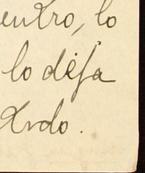 entro, lo
lo dija
ardo.